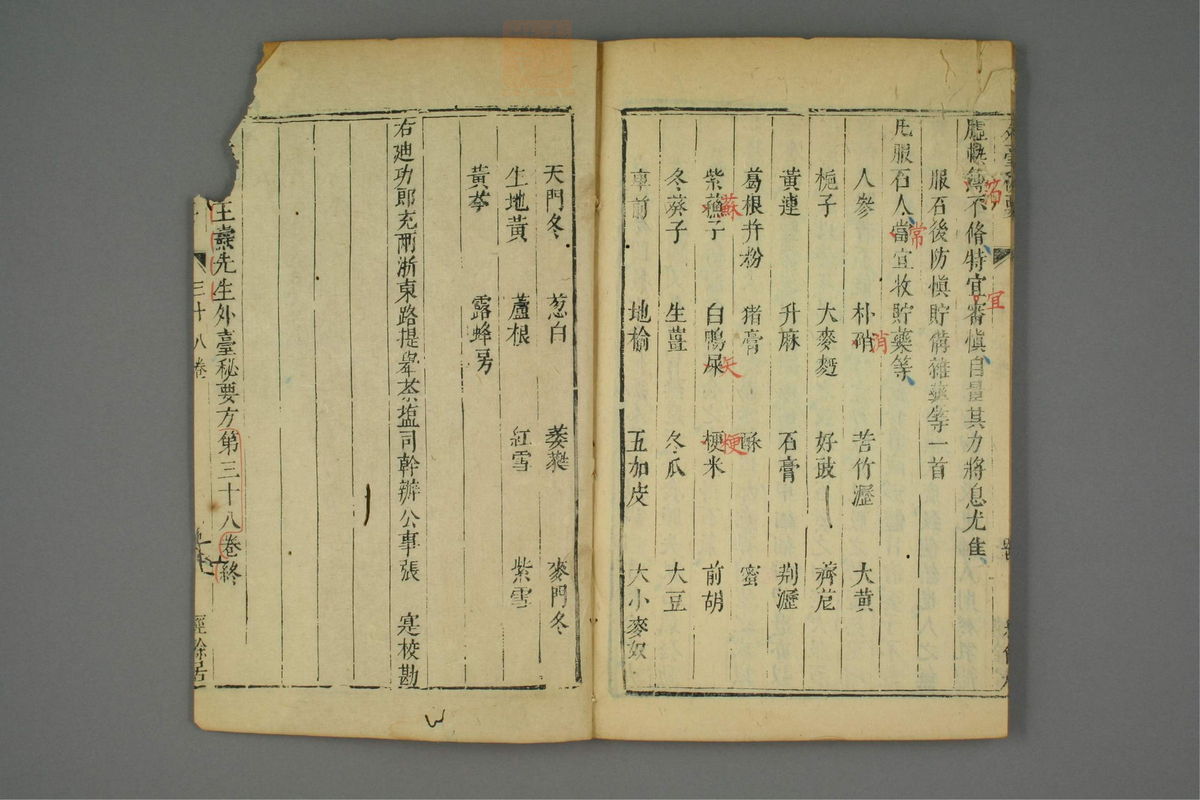 虛燥籌不脩特宜審愼自量其力將息尤隹
服石後防愼貯備雜藥等一首
凡服石人當宜收貯藥等
人參 朴硝 苦竹瀝 大黄
梔子 大麥麪 好豉 薺苨
黄連 升麻 石膏 荆瀝
葛根并粉 猪膏 酥 蜜
紫蘓子 白鴨屎 粳米 前胡
冬葵子 生薑 冬瓜 大豆
車前 地榆 五加皮 大小麥奴
芻
宜
常
消
蘇
矢
粳
天門冬 葱白 萎蕤 麥門冬
生地黄 蘆根 紅雪 紫雪
黄芩 露蜂房
右迪功郎充兩浙東路提舉茶塩司幹辦公事張 寔校勘
王燾先生外臺秘要方第三十八卷終
三十八卷
經餘居